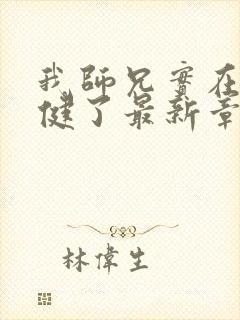 我師兄實在
健了最新章
林偉生